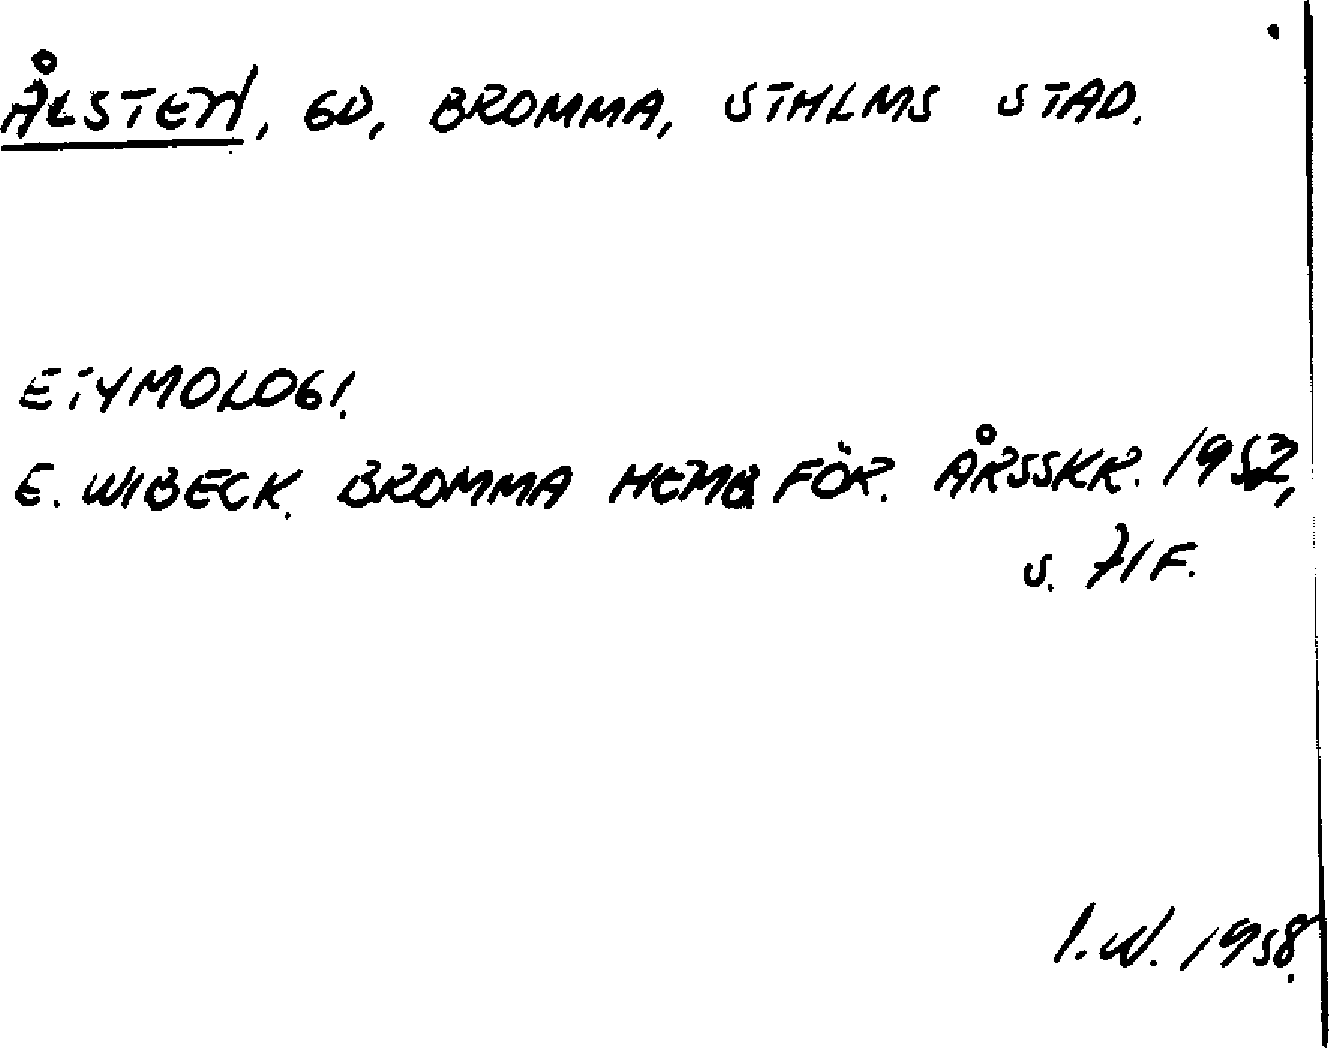 ÅLSTEN, GD, BROMMA, STHLMS STAD.
ETYMOLOGI.
E. WIBECK. BROMMA HEMB FÖR. ÅRSSKR. 1952,
S. 71 F.
I.W. 1958.